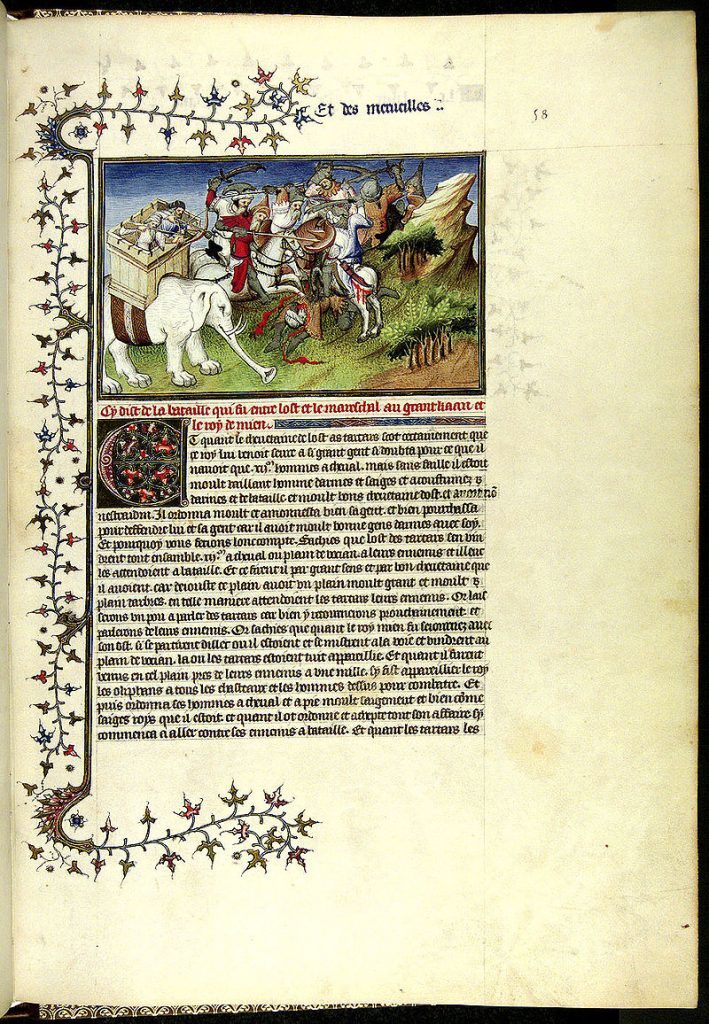 Et des merueilles :
58
Cy dist de la bataille qui fu entre lost et le mareschal au grant kaan et
le roy de mien.
Et quant le cheuetaine de lost as tartars scot certainement que
ce roy lui venoit seure a si grant gent si doubta pour ce que il
nauoit que .xij.m hommes a cheual. mais sans faille il estoit
moult vaillant homme darmes et saiges et acoustume
darmes et de bataille et moult bons cheuetaine dost. et auoit nõ
nestraidin. Il ordonna moult et amonnesta bien sa gent. et bien pourchassa
pour deffendre lui et sa gent car il auoit moult bonne gens darmes auec soy.
Et pourquoy vous feroie lonc compte. Sachies que lost des tartars sen vin
drent tout ensemble .xij.m a cheual ou plain de vocian. a leurs ennemis et illeuc
les attendoient a bataille. Et ce firent il par grant sens et par bon cheuetaine que
il auoient. car dejouste ce plain auoit vn plain moult grant et moult
plain darbres. en telle maniere attendoient les tartars leurs ennemis. Or lais
serons vn pou a parler des tartars car bien y retournerons prouchainement. et
parlerons de leurs ennemis. Or sachies que quant le roy mien fu seiournez auec
son ost. si se partirent dillec ou il estoient et se mistrent a la voie et vindrent au
plain de vocian. la ou les tartars estoient tuit appareillie. Et quant il furent
venus en cel plain pres de leurs ennemis a vne mille. sy fist appareillier le roy
les oliphans a tous les chasteaux et les hommes dessus pour combatre. Et
puis ordonna ses hommes a cheual et a pie moult saigement et bien cõme
saiges roys que il estoit. et quant il ot ordonne et adrepte tout son affaire sy
commenca a aller contre ses ennemis a bataille. Et quant les tartars les